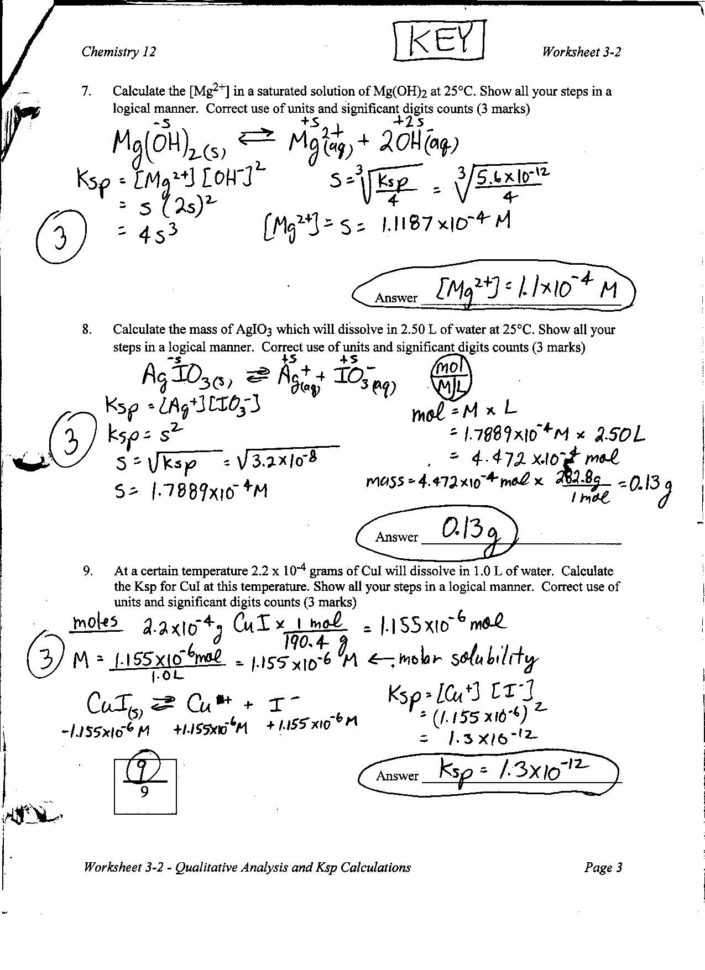 KEY
Chemistry 12 Worksheet 3-2
7. Calculate the [Mg²⁺] in a saturated solution of Mg(OH)₂ at 25°C. Show all your steps in a
logical manner. Correct use of units and significant digits counts (3 marks)
-s +s +2s
Mg(OH)₂(s) ⇌ Mg²⁺(aq) + 2OH⁻(aq)
Ksp = [Mg²⁺][OH⁻]² S = ³√(Ksp/4) = ³√(5.6×10⁻¹²/4)
= s (2s)²
= 4s³ [Mg²⁺] = S = 1.1187 ×10⁻⁴ M
3
Answer [Mg²⁺] = 1.1×10⁻⁴ M
8. Calculate the mass of AgIO₃ which will dissolve in 2.50 L of water at 25°C. Show all your
steps in a logical manner. Correct use of units and significant digits counts (3 marks)
-s +s +s
AgIO₃(s) ⇌ Ag⁺(aq) + IO₃⁻(aq) mol
M|L
Ksp = [Ag⁺][IO₃⁻] mol = M × L
3 Ksp = s² = 1.7889×10⁻⁴ M × 2.50 L
S = √Ksp = √3.2×10⁻⁸ = 4.472 ×10⁻⁴ mol
S = 1.7889×10⁻⁴M mass = 4.472×10⁻⁴ mol × 282.8g/1 mol = 0.13 g
Answer 0.13 g
9. At a certain temperature 2.2 x 10⁻⁴ grams of CuI will dissolve in 1.0 L of water. Calculate
the Ksp for CuI at this temperature. Show all your steps in a logical manner. Correct use of
units and significant digits counts (3 marks)
moles 2.2×10⁻⁴g CuI × 1 mol/190.4 g = 1.155×10⁻⁶ mol
3 M = 1.155×10⁻⁶mol/1.0L = 1.155 ×10⁻⁶ M ← molar solubility
CuI(s) ⇌ Cu⁺ + I⁻ Ksp = [Cu⁺] [I⁻]
-1.155×10⁻⁶ M +1.155×10⁻⁶M +1.155 ×10⁻⁶ M = (1.155 ×10⁻⁶)²
= 1.3 ×10⁻¹²
9
9
Answer Ksp = 1.3×10⁻¹²
Worksheet 3-2 - Qualitative Analysis and Ksp Calculations Page 3